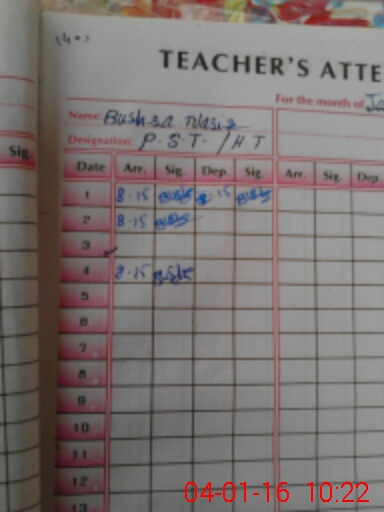 TEACHER'S ATTE
For the month of Ja
Name: Bushra Nasir
Designation: P.S.T. / H T
Sig.
Date Arr. Sig. Dep. Sig. Arr. Sig. Dep.
1 8.15 Bushra 2.15 Bushra
2 8.15 Bushra
3
4 8.15 Bushra
5
6
7
8
9
10
11
12
13
04-01-16 10:22